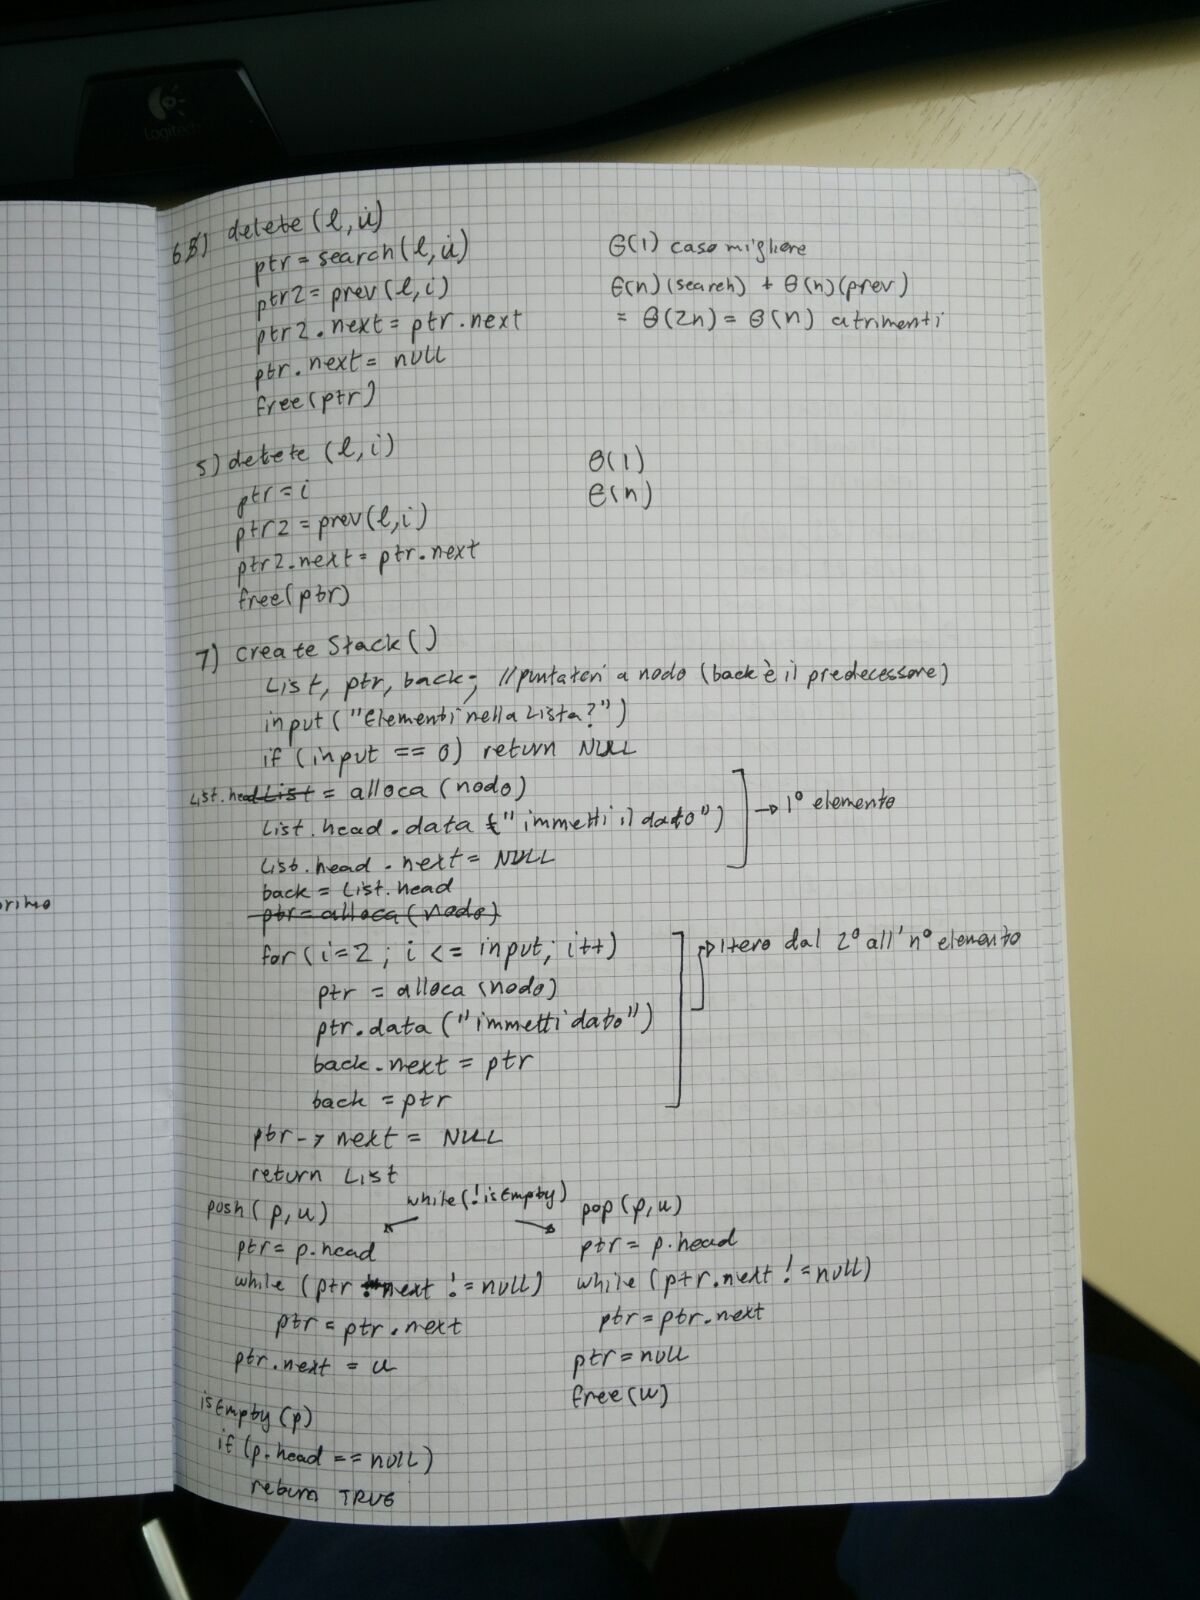 Logitech
6B) delete (l, ú)
ptr = search (l, ú)
ptr2 = prev (l, i)
ptr2.next = ptr.next
ptr.next = null
free (ptr)
Θ(1) caso migliere
Θ(n) (search) + Θ(n) (prev)
= Θ(2n) = Θ(n) atrimenti
5) delete (l, i)
ptr = i
ptr2 = prev (l, i)
ptr2.next = ptr.next
free (ptr)
Θ(1)
Θ(n)
7) create Stack ()
List, ptr, back; // puntatori a nodo (back è il predecessore)
input ("Elementi nella Lista?")
if (input == 0) return NULL
List.head List = alloca (nodo)
List.head.data ("immetti il dato")
List.head.next = NULL
→ 1° elemento
back = List.head
ptr = alloca (nodo)
for (i=2; i <= input; i++)
ptr = alloca (nodo)
ptr.data ("immetti dato")
back.next = ptr
back = ptr
→ Itero dal 2° all'n° elemento
ptr -> next = NULL
return List
while (!isEmpty)
push (p, u)
ptr = p.head
while (ptr.next != null)
ptr = ptr.next
ptr.next = u
pop (p, u)
ptr = p.head
while (ptr.next != null)
ptr = ptr.next
ptr = null
free (u)
isEmpty (p)
if (p.head == null)
return TRUE